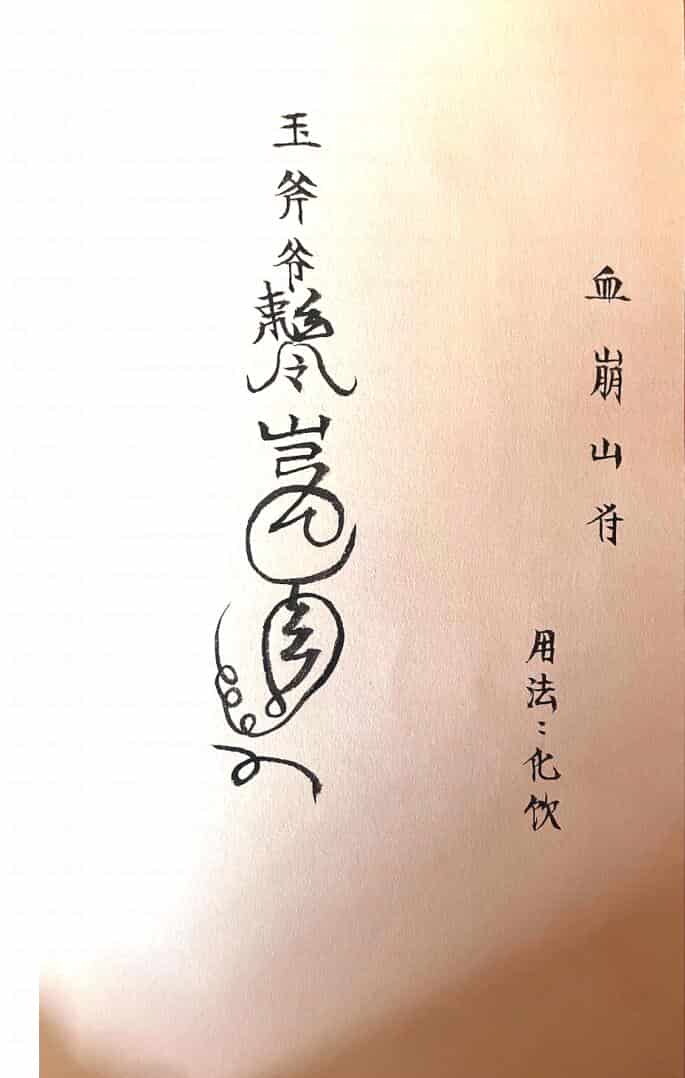 血崩山符
用法：化饮
玉斧爷敕令